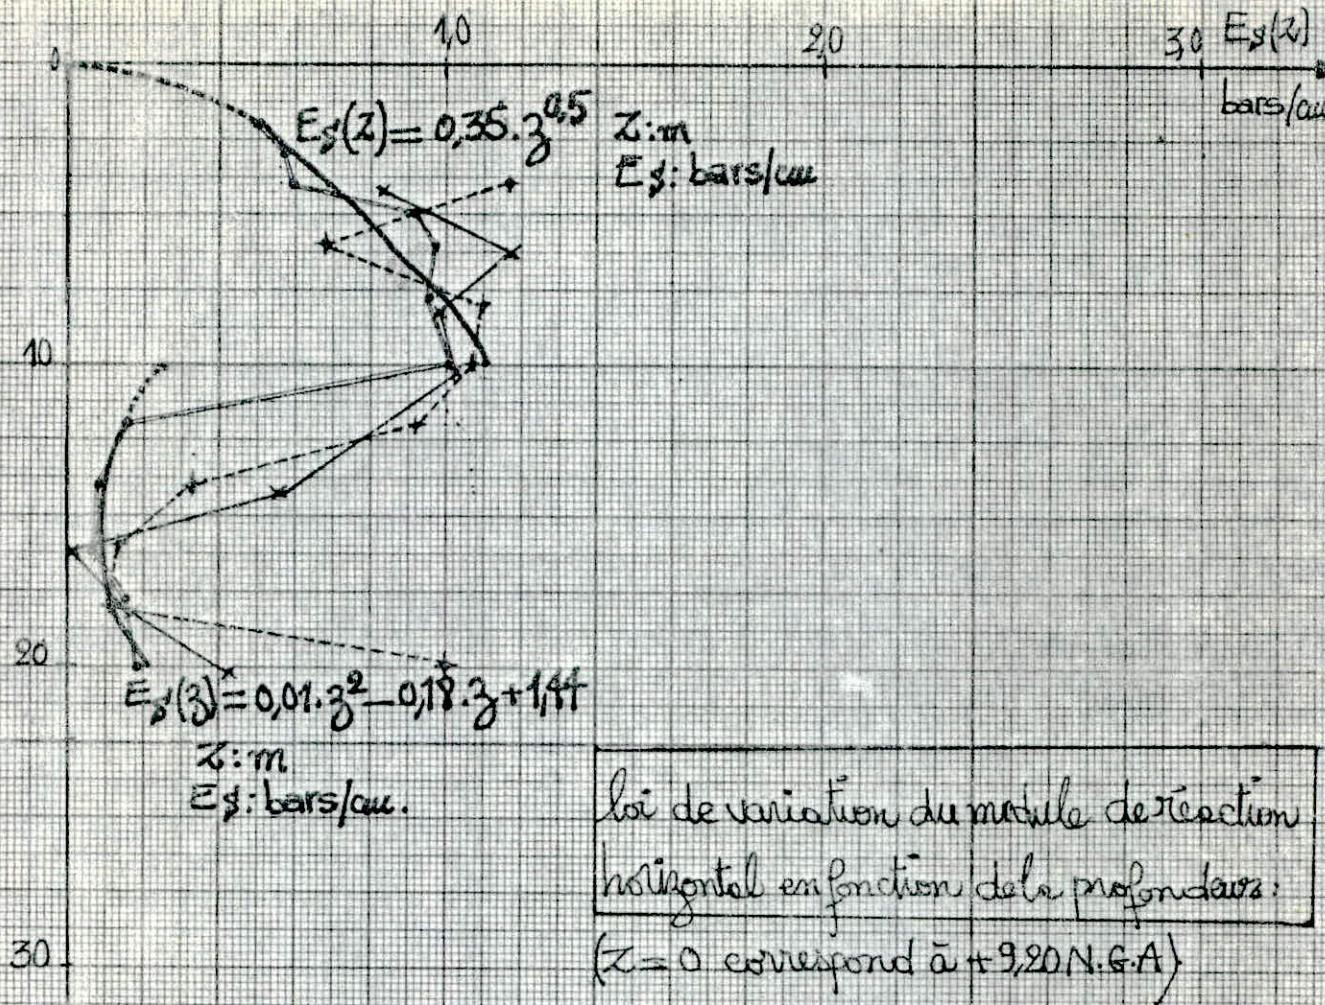 1,0 2,0 3,0 Es(z)
0
bars/cm
Es(z) = 0,35.z^0,5 Z: m
Es: bars/cm
10
20
Es(z) = 0,01.z² – 0,18.z + 1,44
Z: m
Es: bars/cm.
loi de variation du module de réaction
horizontal en fonction de la profondeur:
30
(Z = 0 correspond à + 9,20 N.G.A)